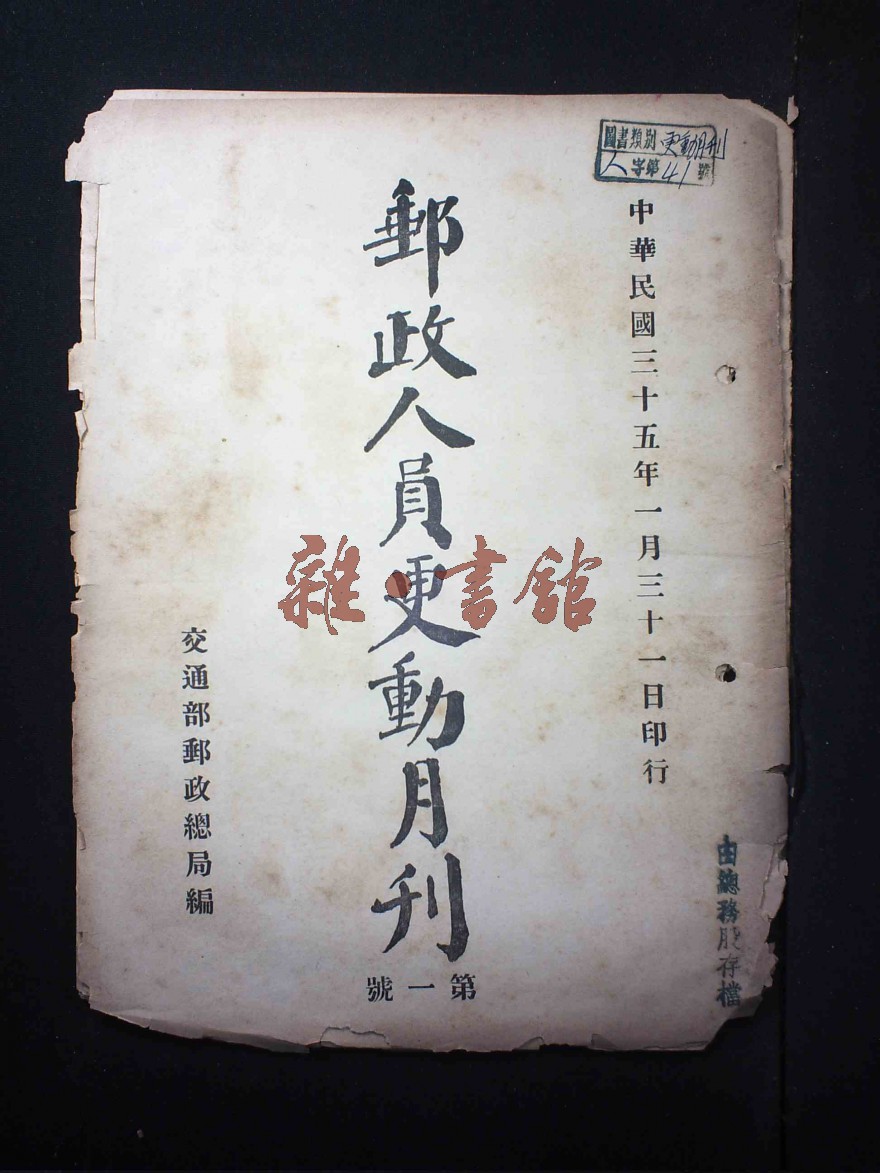 圖書類別 更動月刊
人字第41號
中華民國三十五年一月三十一日印行
郵政人員更動月刊
第一號
交通部郵政總局編
由總務股存檔
雜書館